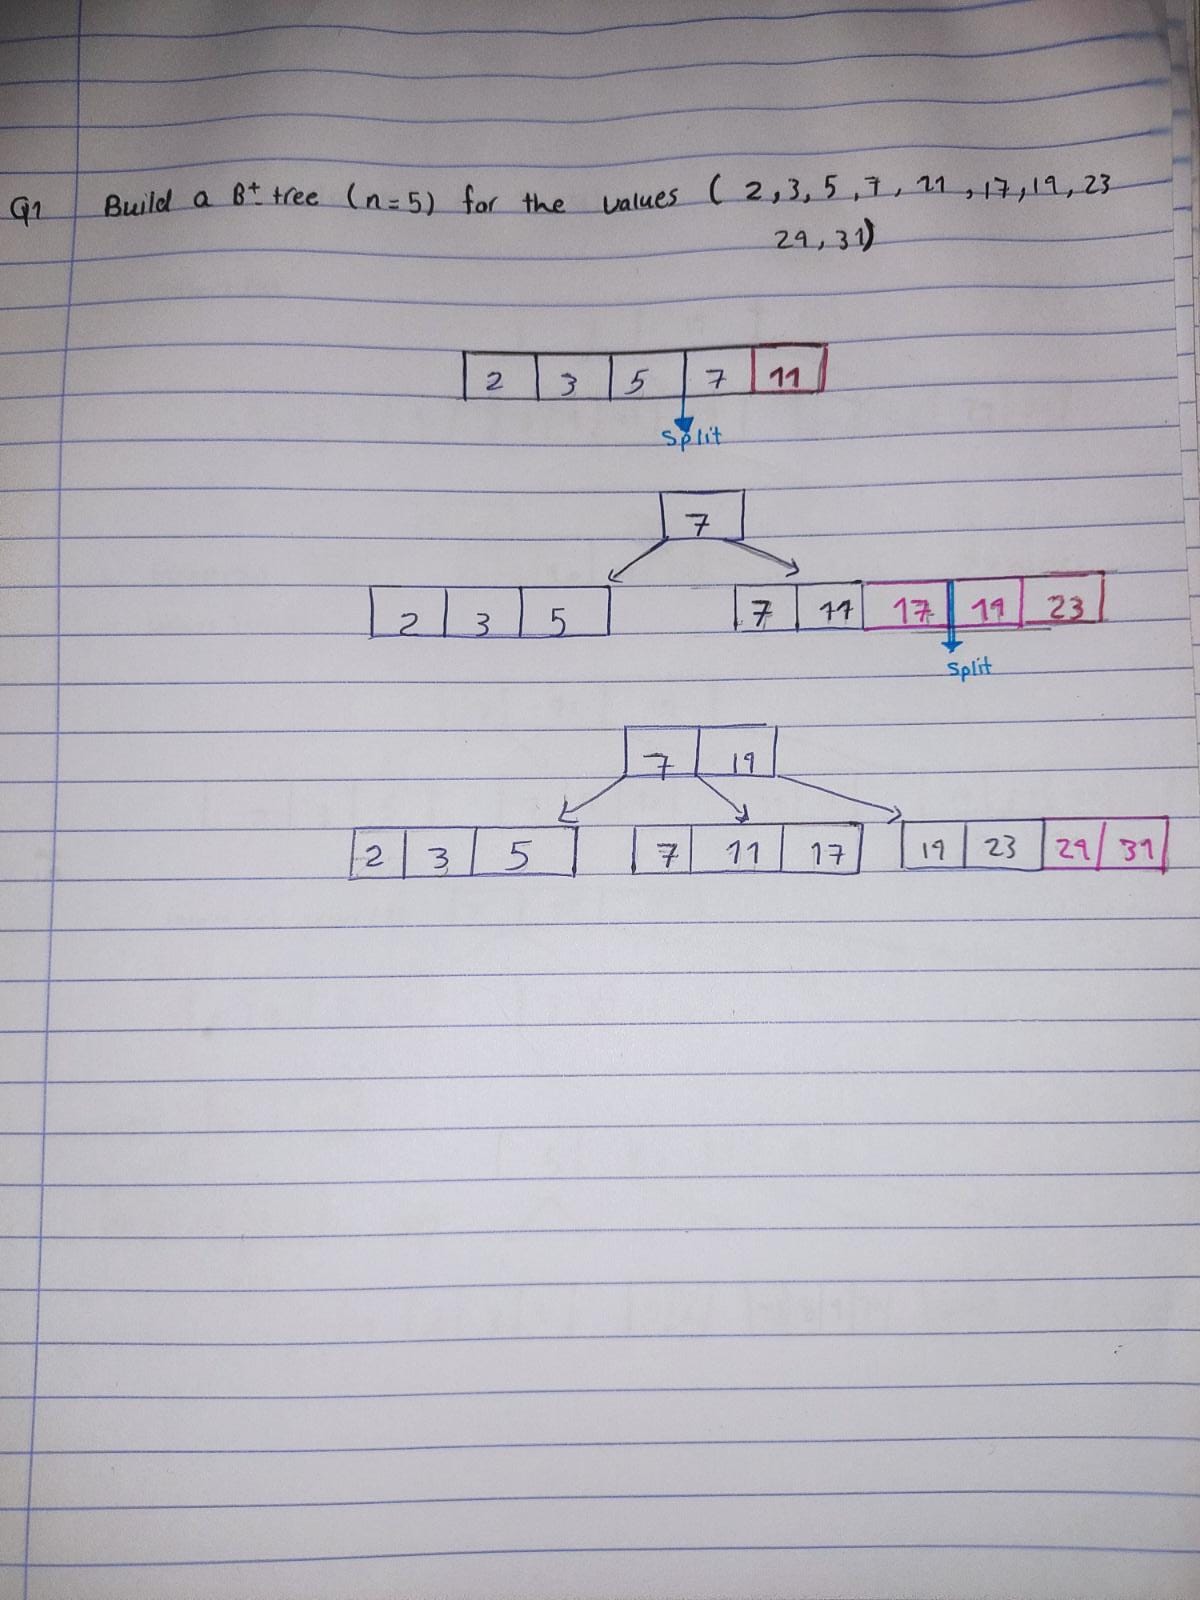 Q1 Build a B+ tree (n=5) for the values (2,3,5,7,11,17,19,23
29,31)
2 3 5 7 11
Split
7
2 3 5 7 11 17 19 23
Split
7 19
2 3 5 7 11 17 19 23 29 31